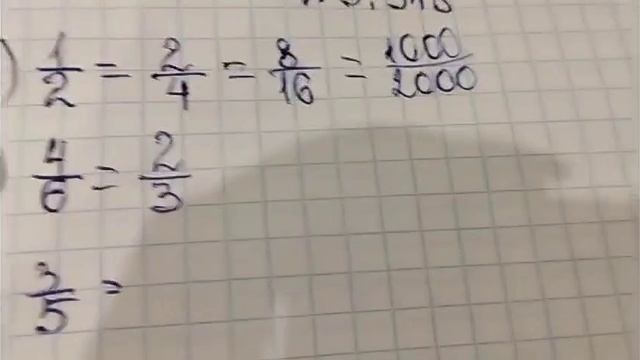 1/2 = 2/4 = 8/16 = 1000/2000
4/6 = 2/3
3/5 =